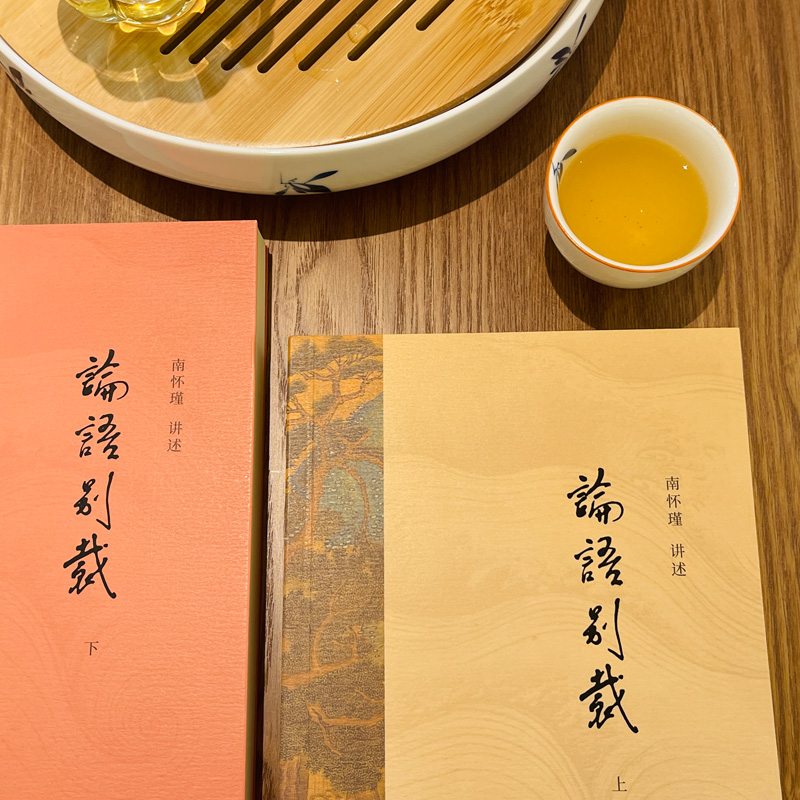 論語別裁
南怀瑾 讲述
下
論語別裁
南怀瑾 讲述
上